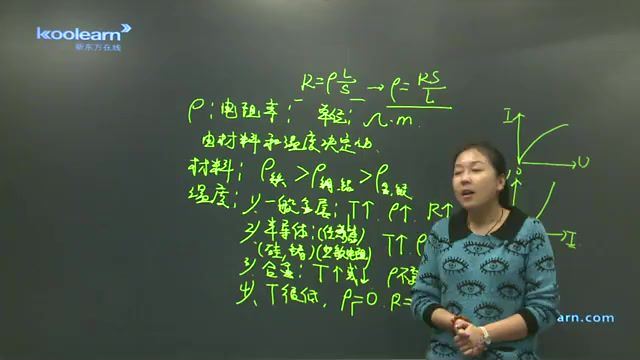 koolearn
新东方在线
R=ρL/S → ρ=RS/L
ρ:电阻率: 单位: Ω·m.
由材料和温度决定
材料: ρ铁 > ρ > ρ
温度: 1) 一般金属: T↑ ρ↑ R↑
2) 半导体: T↑ ρ
(硅,锗)
3) 合金: T↑或↓ ρ不
4) T很低, ρ=0 R=
I
U
I
rn.com